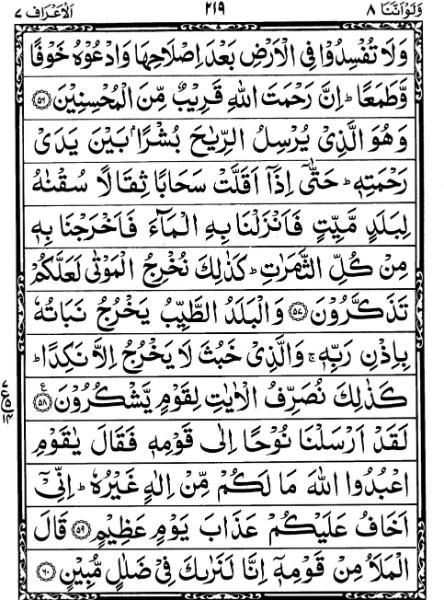 وَلَوْ اَنَّنَا ٨ ٢١٩ اَلْاَعْرَاف ٧
وَلَا تُفْسِدُوْا فِي الْاَرْضِ بَعْدَ اِصْلَاحِهَا وَادْعُوْهُ خَوْفًا
وَّطَمَعًا ؕ اِنَّ رَحْمَتَ اللّٰهِ قَرِيْبٌ مِّنَ الْمُحْسِنِيْنَ ﴿٥٦﴾
وَهُوَ الَّذِيْ يُرْسِلُ الرِّيٰحَ بُشْرًۢا بَيْنَ يَدَيْ
رَحْمَتِهٖ ؕ حَتّٰۤى اِذَاۤ اَقَلَّتْ سَحَابًا ثِقَالًا سُقْنٰهُ
لِبَلَدٍ مَّيِّتٍ فَاَنْزَلْنَا بِهِ الْمَآءَ فَاَخْرَجْنَا بِهٖ
مِنْ كُلِّ الثَّمَرٰتِ ؕ كَذٰلِكَ نُخْرِجُ الْمَوْتٰى لَعَلَّكُمْ
تَذَكَّرُوْنَ ﴿٥٧﴾ وَالْبَلَدُ الطَّيِّبُ يَخْرُجُ نَبَاتُهٗ
بِاِذْنِ رَبِّهٖ ۚ وَالَّذِيْ خَبُثَ لَا يَخْرُجُ اِلَّا نَكِدًا ؕ
كَذٰلِكَ نُصَرِّفُ الْاٰيٰتِ لِقَوْمٍ يَّشْكُرُوْنَ ﴿٥٨﴾ ع
لَقَدْ اَرْسَلْنَا نُوْحًا اِلٰى قَوْمِهٖ فَقَالَ يٰقَوْمِ
اعْبُدُوا اللّٰهَ مَا لَكُمْ مِّنْ اِلٰهٍ غَيْرُهٗ ؕ اِنِّيْۤ
اَخَافُ عَلَيْكُمْ عَذَابَ يَوْمٍ عَظِيْمٍ ﴿٥٩﴾ قَالَ
الْمَلَاُ مِنْ قَوْمِهٖۤ اِنَّا لَنَرٰىكَ فِيْ ضَلٰلٍ مُّبِيْنٍ ﴿٦٠﴾